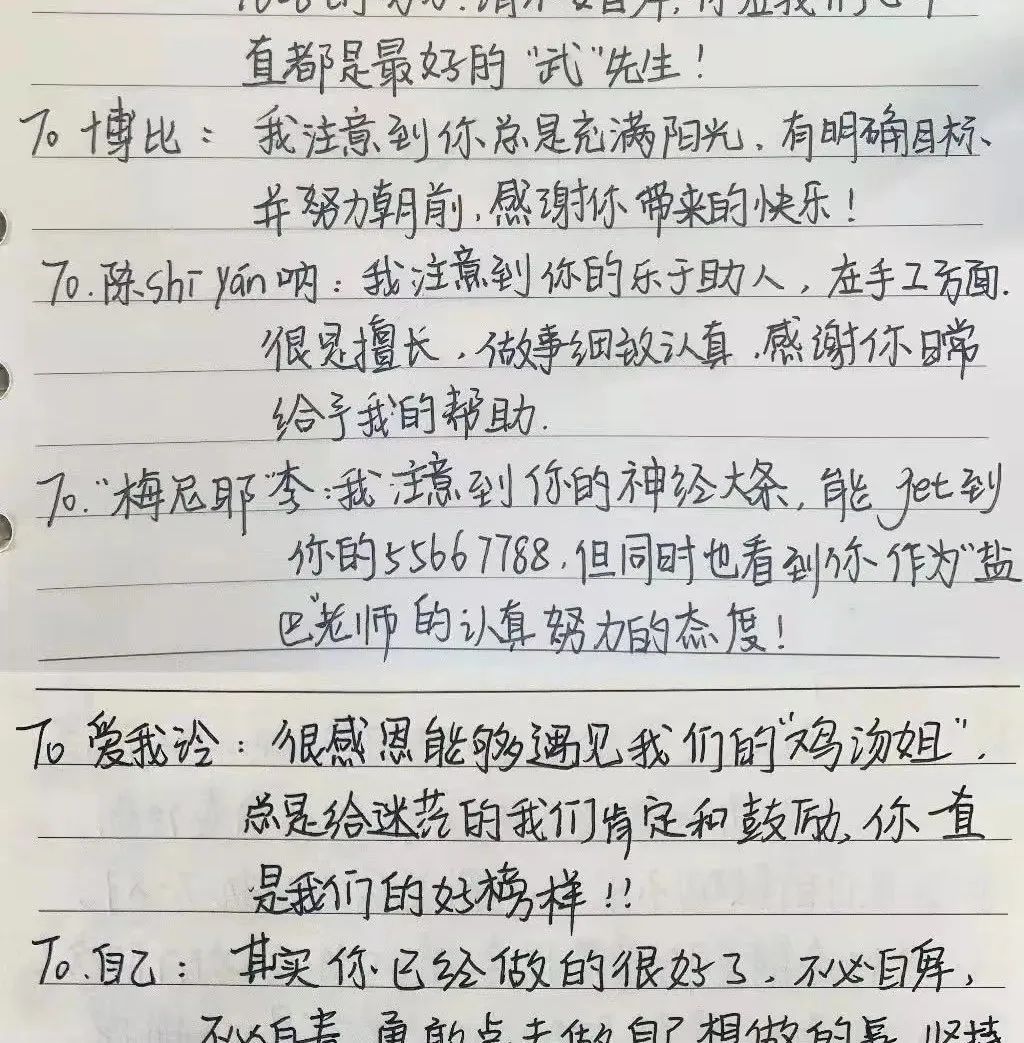 直都是最好的"武"先生！
To 博比：我注意到你总是充满阳光，有明确目标、
并努力朝前，感谢你带来的快乐！
To.陈shī yán呐：我注意到你的乐于助人，在手工方面.
很是擅长，做事细致认真，感谢你日常
给予我的帮助.
To."梅尼耶"李：我注意到你的神经大条，能get到
你的55667788，但同时也看到你作为"盐
巴"老师的认真努力的态度！
To 爱我诊：很感恩能够遇见我们的"鸡汤姐"，
总是给迷茫的我们肯定和鼓励，你一直
是我们的好榜样！！
To.自己：其实你已经做的很好了，不必自卑，
不必自责，勇敢点去做自己想做的事，坚持